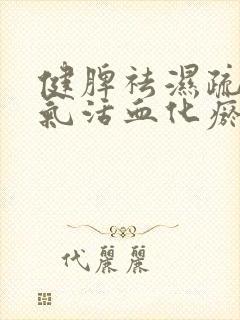 健脾祛濕疏
氣活血化瘀
代麗麗